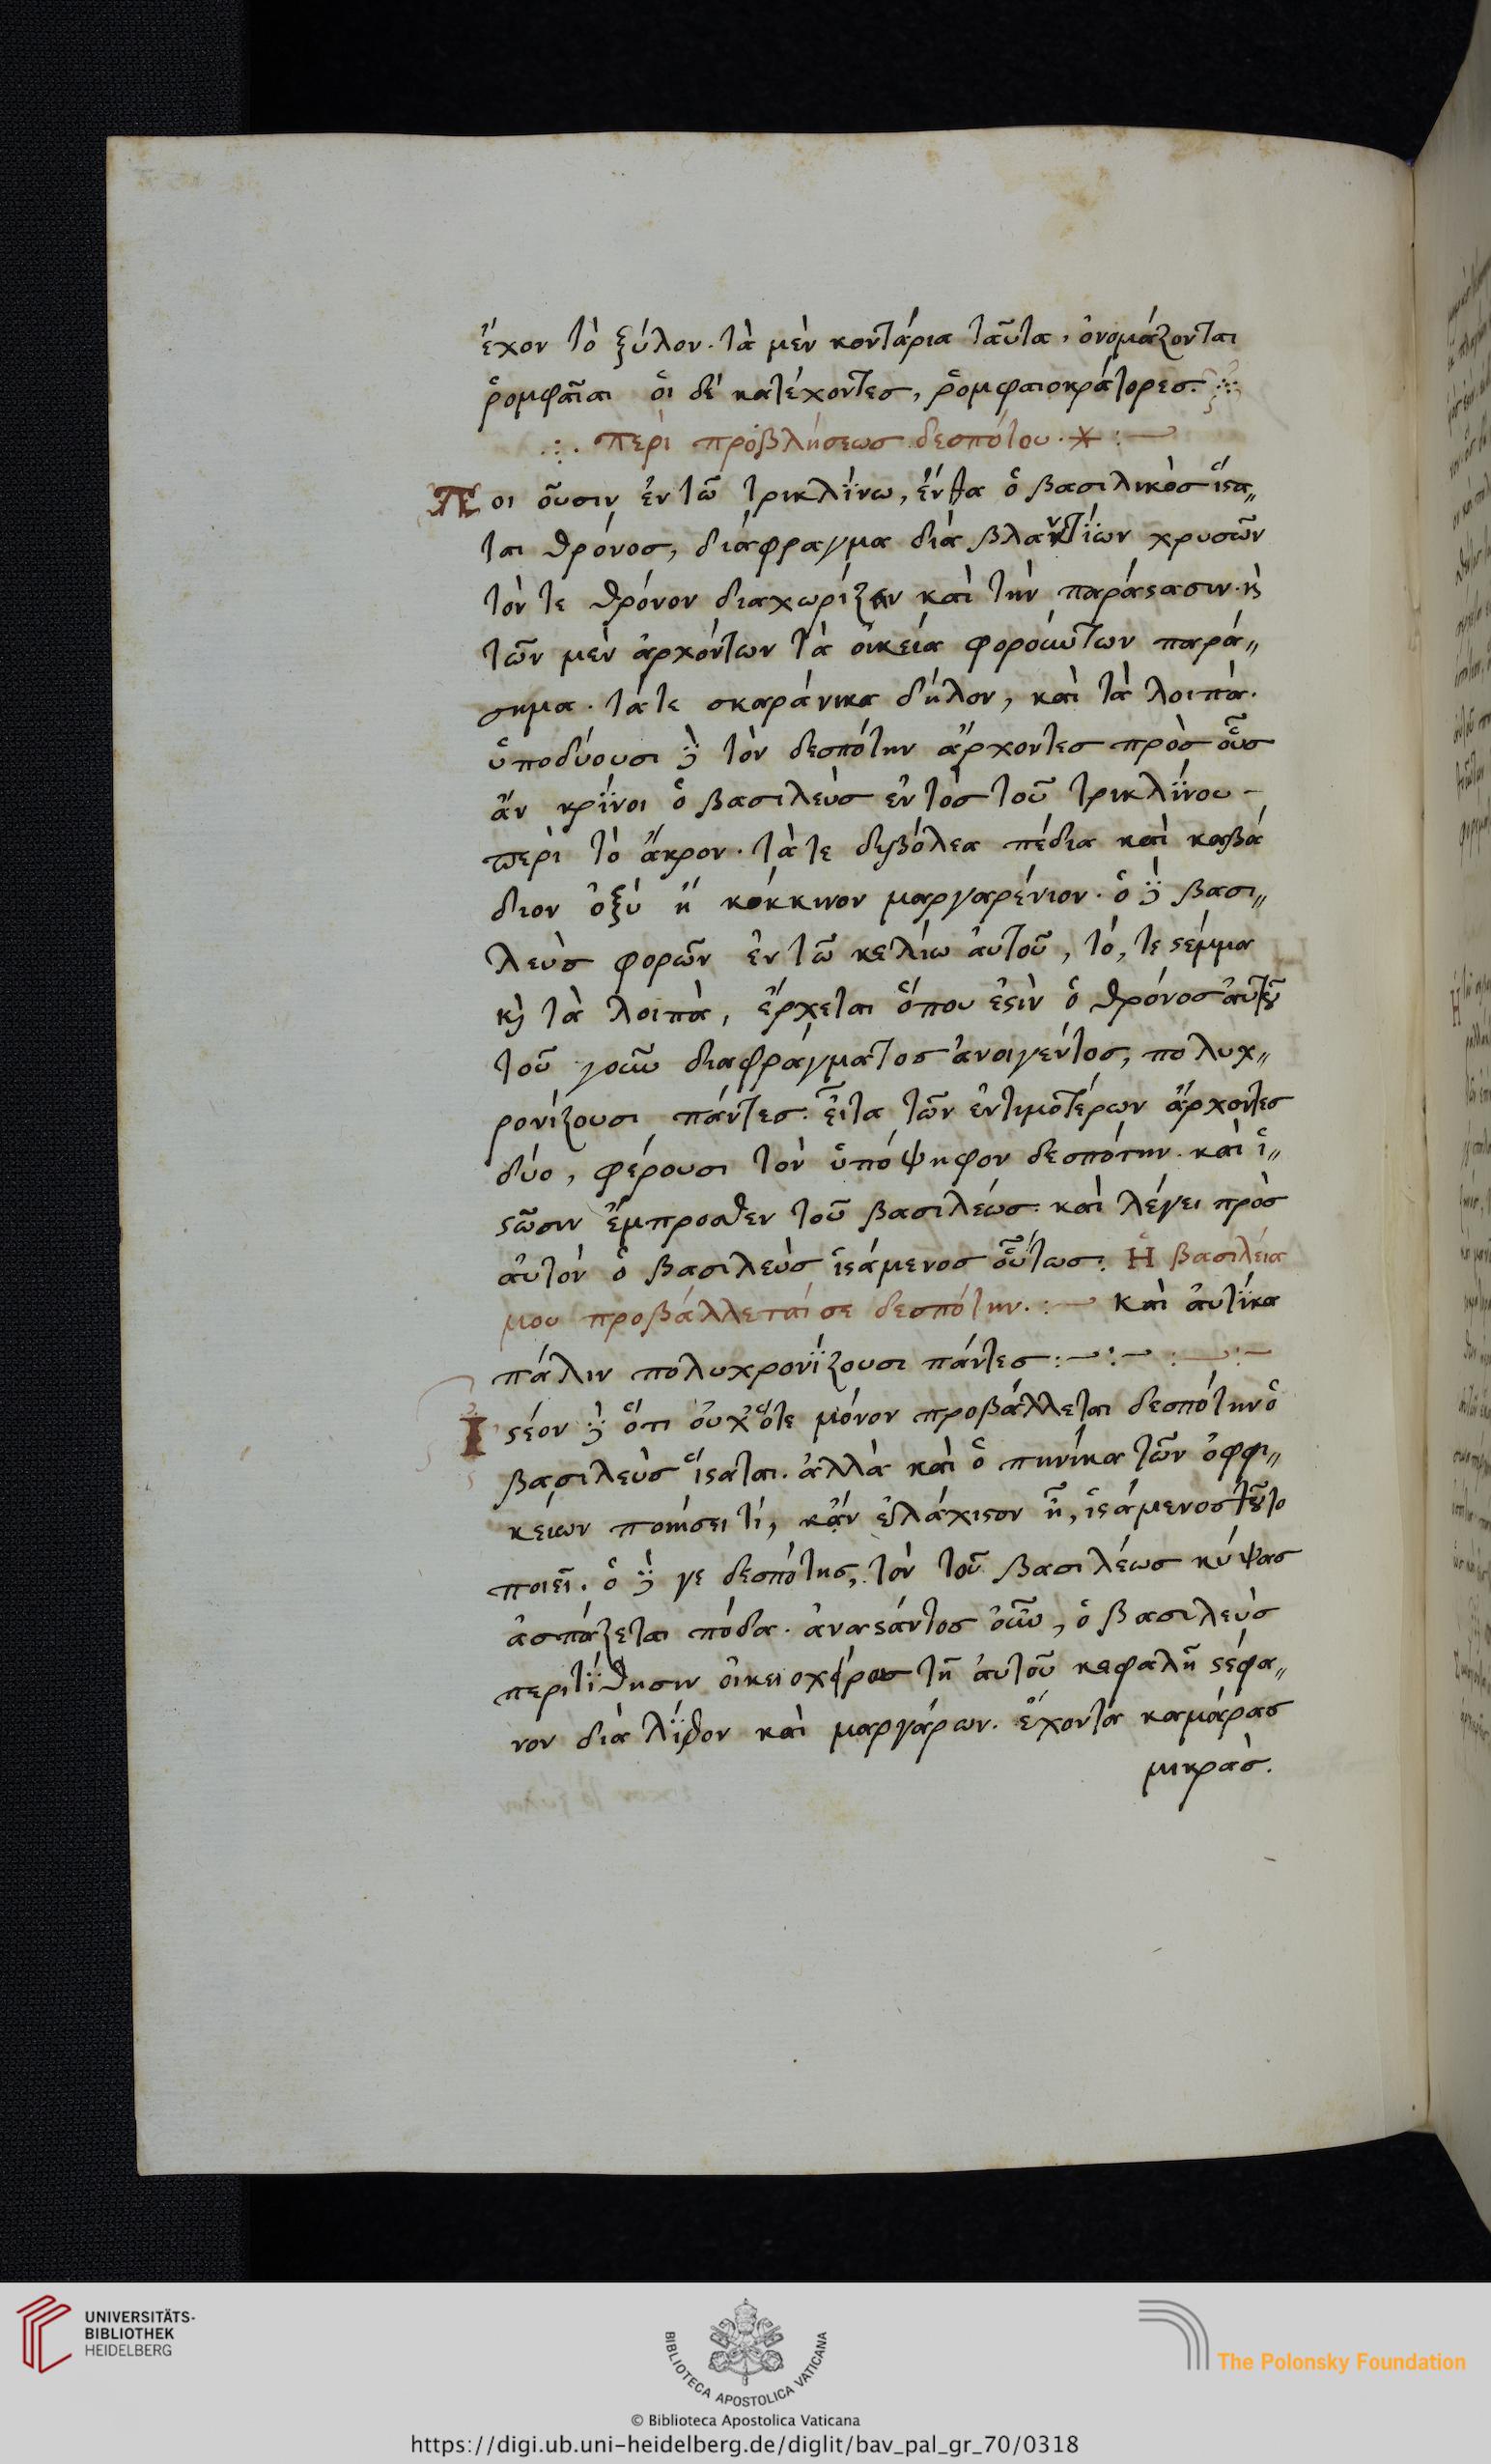 ἔχον τὸ ξύλον. τὰ μὲν κοντάρια ταῦτα, ὀνομάζονται
ῥομφαῖαι οἱ δὲ κατέχοντες, ῥομφαιοκράτορες.
περὶ προβλήσεως δεσπότου.
Ποιοῦσιν ἐν τῶ τρικλίνω, ἔνθα ὁ βασιλικὸς ἵστα„
ται θρόνος, διάφραγμα διὰ βλαντίων χρυσῶν
τόν τε θρόνον διαχωρίζον καὶ τὴν παράστασιν. ἢ
τῶν μὲν ἀρχόντων τὰ οἰκεία φορούντων παρά„
σημα. τά τε σκαράνικα δῆλον, καὶ τὰ λοιπά.
ὑποδύουσι δὲ τὸν δεσπότην ἄρχοντες πρὸς οὓς
ἂν κρίνοι ὁ βασιλεὺς ἐντὸς τοῦ τρικλίνου
περὶ τὸ ἄκρον. τά τε διβόλεα πέδια καὶ καβά
διον ὀξύ ἢ κόκκινον μαργαρένιον. ὁ δὲ βασι„
λεὺς φορῶν ἐν τῶ κελίω αὐτοῦ, τό, τε στέμμα
κὶ τὰ λοιπὰ, ἔρχεται ὅπου ἐστὶν ὁ θρόνος αὐτοῦ
τοῦ γοῦν διαφράγματος ἀνοιγέντος, πολυχ„
ρονίζουσι πάντες. εἶτα τῶν ἐντιμοτέρων ἄρχοντες
δύο, φέρουσι τὸν ὑπόψηφον δεσπότην. καὶ ἱ„
στῶσιν ἔμπροσθεν τοῦ βασιλέως. καὶ λέγει πρὸς
αὐτὸν ὁ βασιλεὺς ἱστάμενος οὕτως. Ἡ βασιλεία
μου προβάλλεταί σε δεσπότην. καὶ αὐτίκα
πάλιν πολυχρονίζουσι πάντες
Ἰστέον δὲ ὅτι οὐχ ὅτε μόνον προβάλλεται δεσπότην ὁ
βασιλεὺς ἵσταται. ἀλλὰ καὶ ὁ πηνίκα τῶν ὀφφι„
κείων ποιήσει τί, κἂν ἐλάχιστον ἦ, ἱστάμενος τοῦτο
ποιεῖ. ὁ δὲ γε δεσπότης, τὸν τοῦ βασιλέως κύψας
ἀσπάζεται πόδα. ἀναστάντος οὖν, ὁ βασιλεὺς
περιτίθησιν οἰκειοχείρως τῆ αὐτοῦ κεφαλῆ στέφα„
νον διὰ λίθον καὶ μαργάρων. ἔχοντα καμάρας
μικρὰς.
UNIVERSITÄTS-
BIBLIOTHEK
HEIDELBERG
BIBLIOTECA APOSTOLICA VATICANA
The Polonsky Foundation
© Biblioteca Apostolica Vaticana
https://digi.ub.uni-heidelberg.de/diglit/bav_pal_gr_70/0318